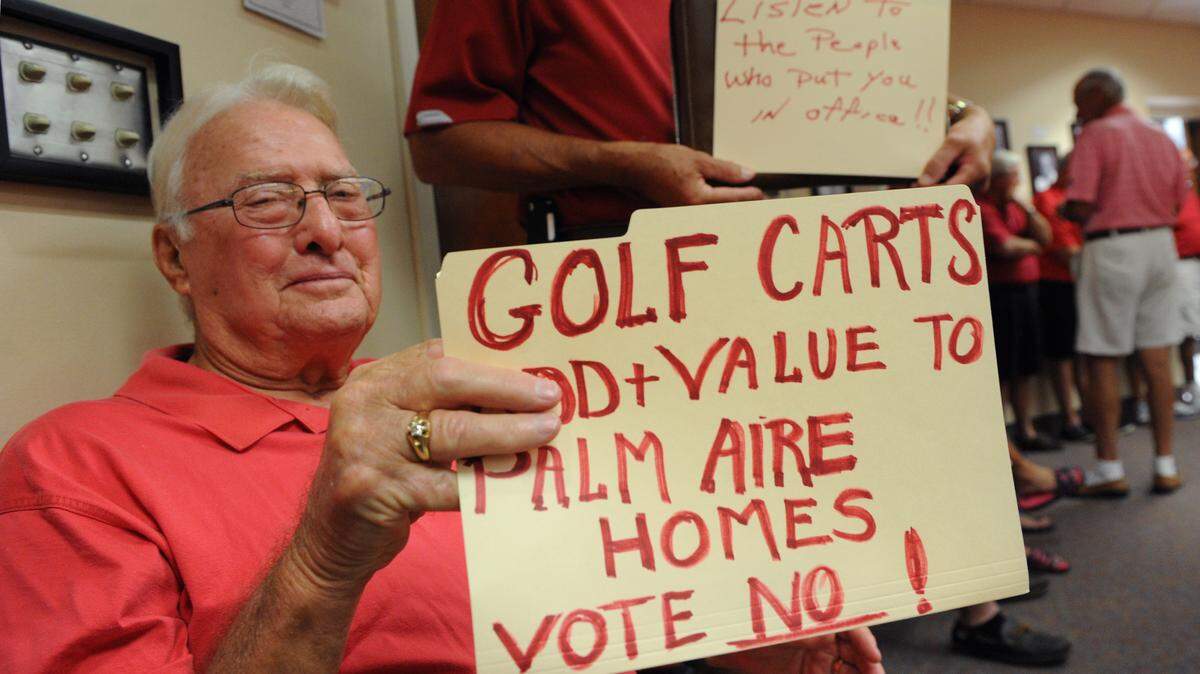 Listen To
the People
who put you
in office!!
GOLF CARTS
ADD + VALUE TO
PALM AIRE
HOMES
VOTE NO!